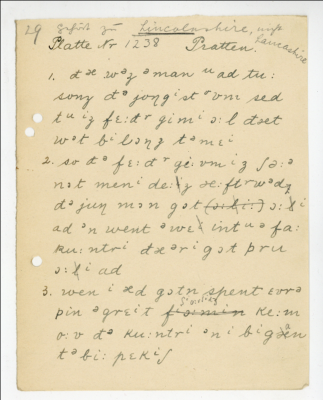 29 gehört zu Lincolnshire, nicht Lancashire
Platte Nr 1238 Pratten.
1. ðæ wəz ə man u ad tu:
sonz ðə joŋgist r ʊm sed
tu iz fɛ:ðr gimi ɔ:l ðæt
wət biləŋz tə mi
2. so ðə fɛ:ðr
nət meni de:z æ:ftrwədz
ðə juŋ mən gət ɔ:l i
ad ən went əwe intu ə fa:
ku:ntri ðɛər i gət þru
ɔ:l i ad
3. wen i æd gətn spent evrə
þin ə greit ke:m
o:v ðə ku:ntri ən i bigæn
tə bi: